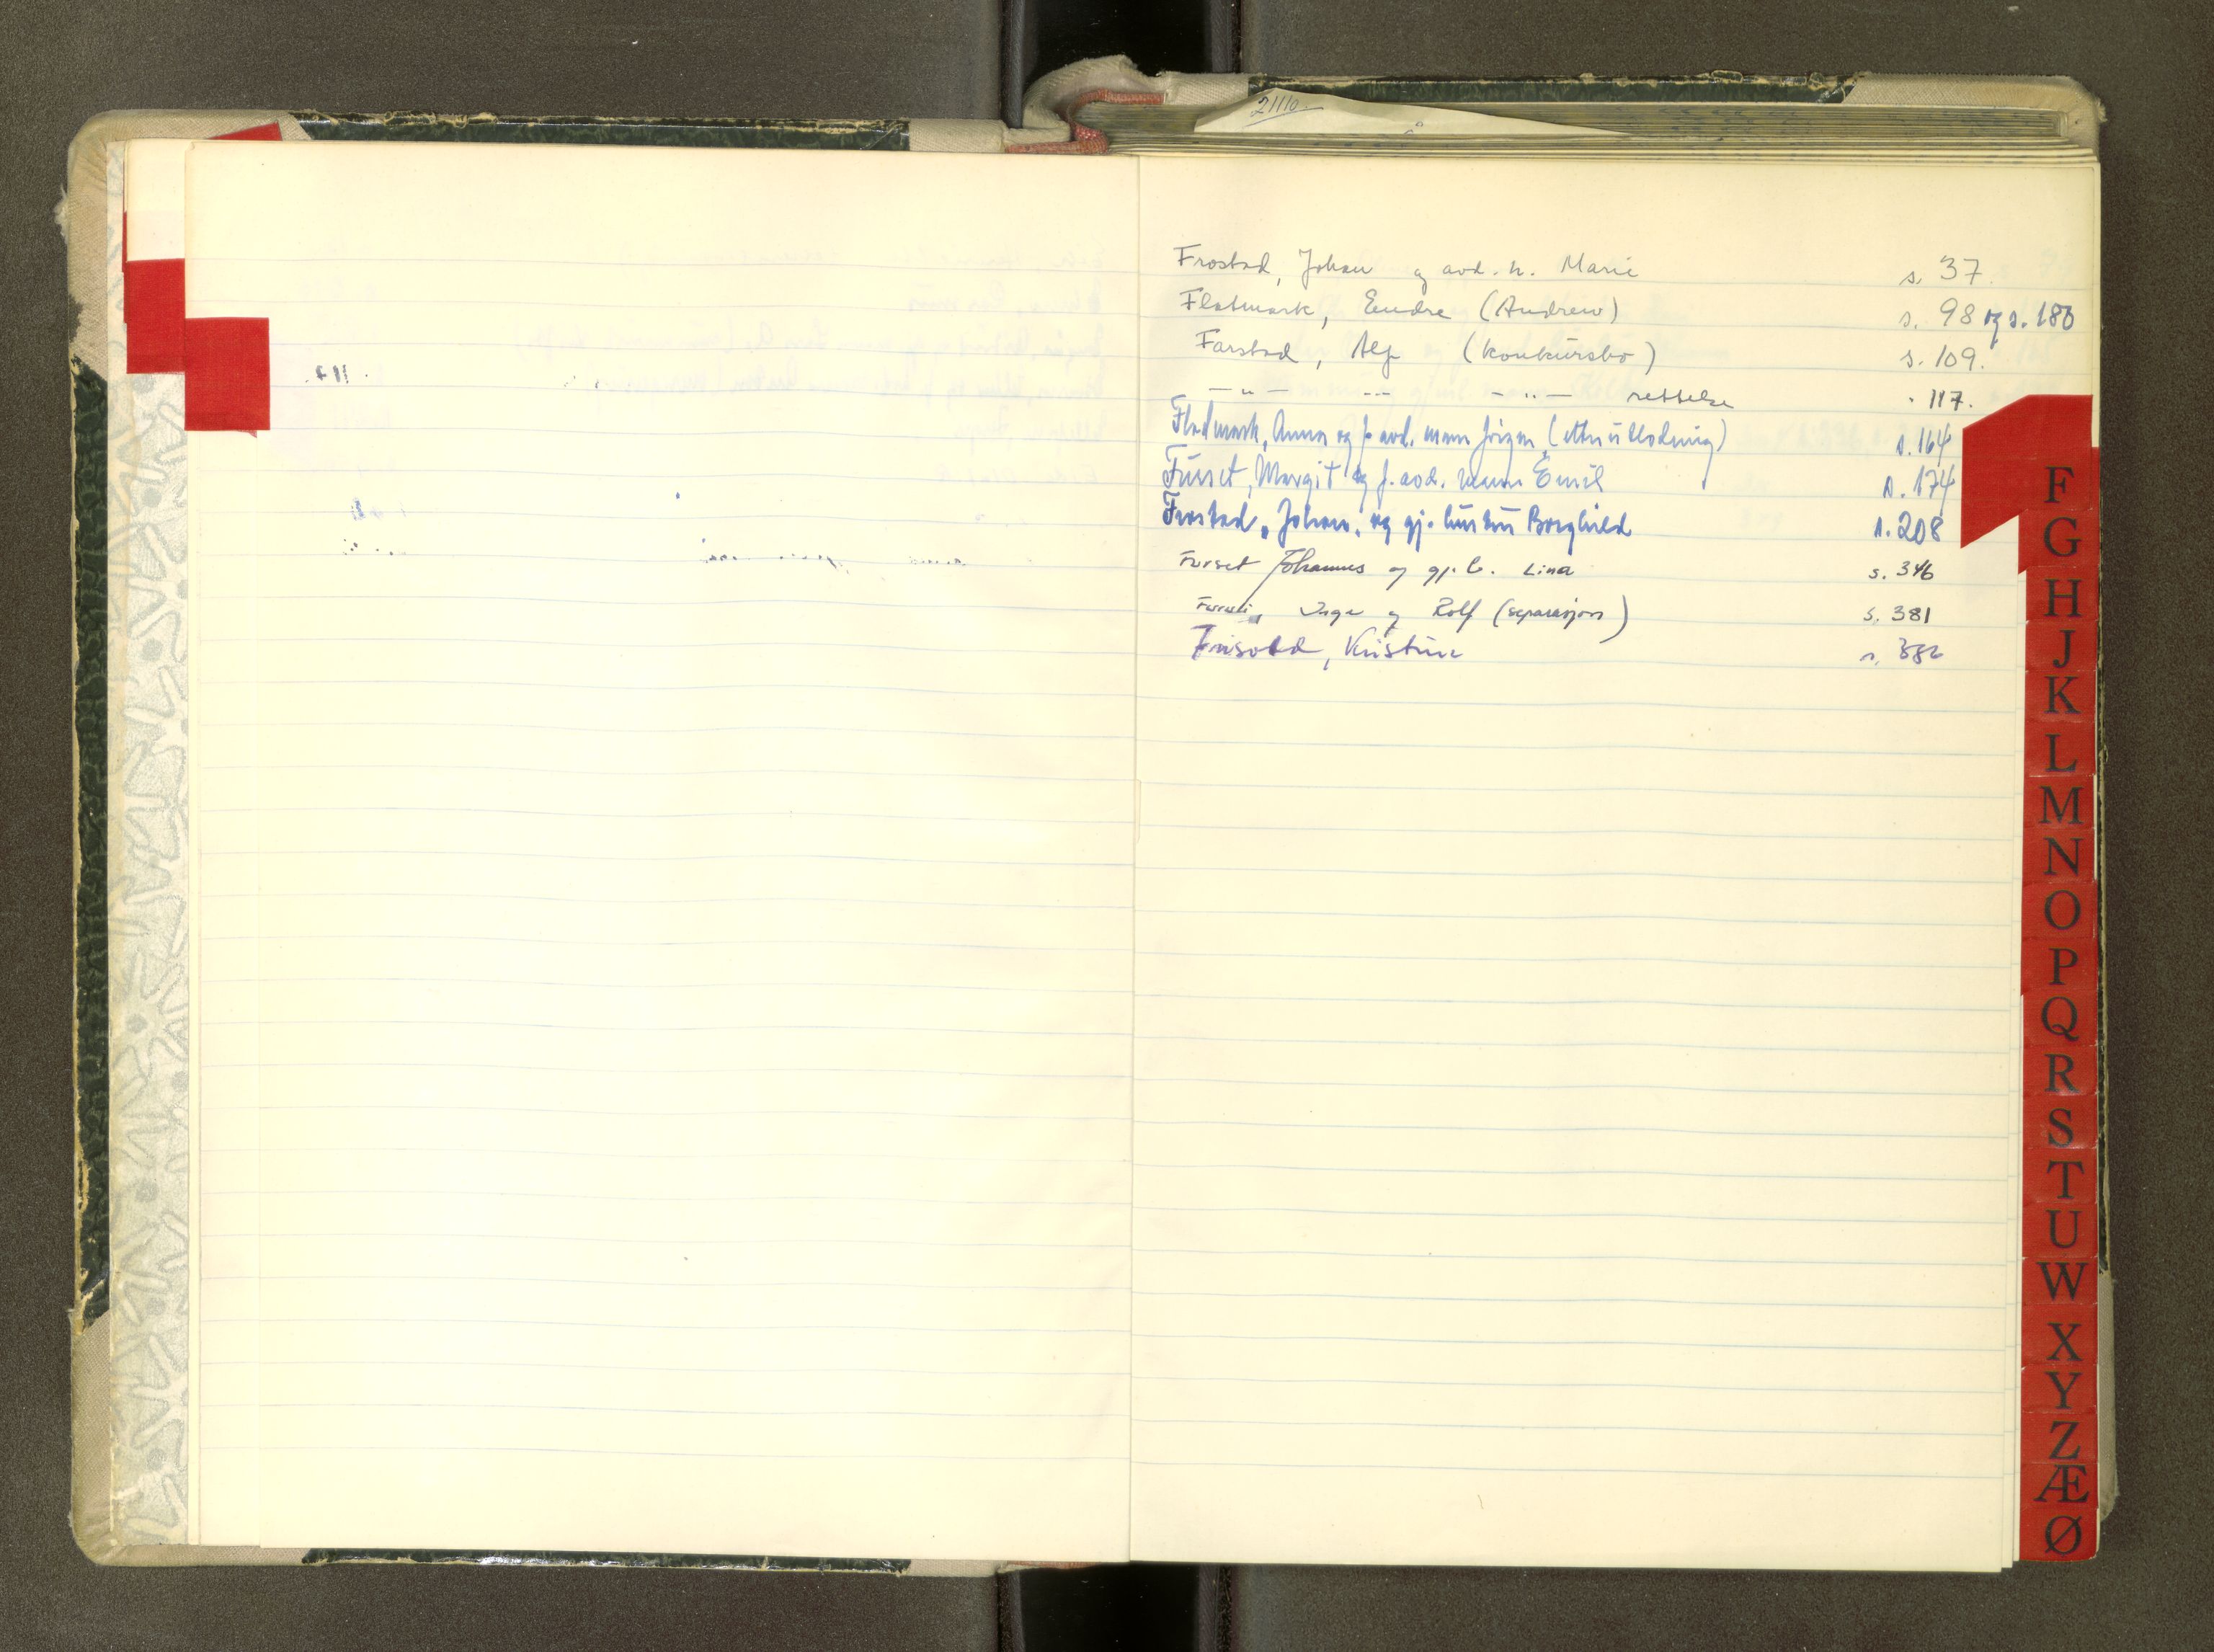 21110
Frostad, Johan og avd. h. Marie s. 37.
Flatmark, Endre (Andrew) s. 98 og s. 180
Farstad, Alf (konkursbo) s. 109.
— " — -- — " — rettelse " 117.
Fladmark, Anna og f. avd. mann Jörgen (etter utlodning) s. 164
Furset, Margit og f. avd. mann Emil s. 174
Frostad, Johan, og gj. hustru Borghild s. 208
Furset Johannes og gj. h. Lina s. 346
Inga og Rolf (separasjon) s. 381
Kristine s. 382
F
G
H
J
K
L
M
N
O
P
Q
R
S
T
U
W
X
Y
Z
Æ
Ø